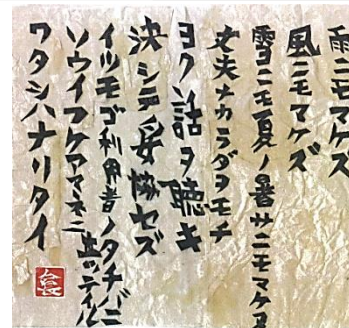 雨ニモマケズ
風ニモマケズ
雪ニモ夏ノ暑サニモマケヌ
丈夫ナカラダヲモチ
ヨク話ヲ聴キ
決シテ妥協セズ
イツモゴ利用者ノタチバニ立ッテイル
ソウイフケアマネニ
ワタシハナリタイ